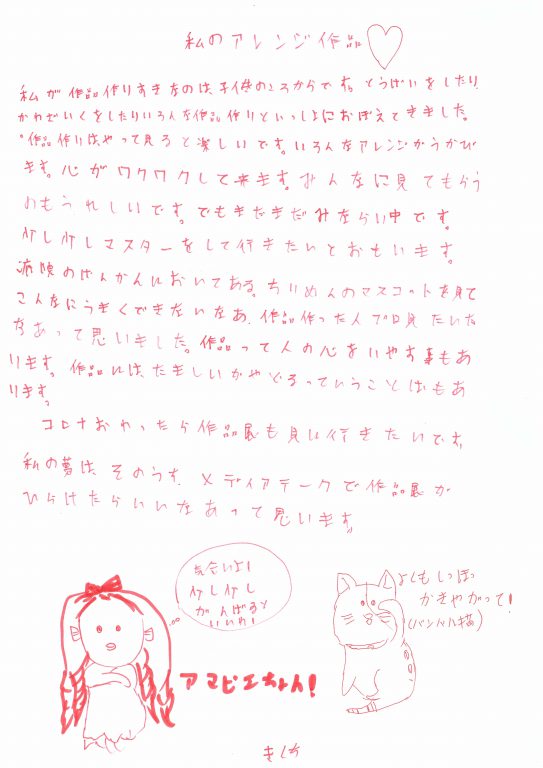 私のアレンジ作品
私が作品作りすきなのは、子供のころからです。とうばいをしたり、
かわざいくをしたりいろんな作品作りといっしょにおぼえてきました。
作品作りはやって見ると楽しいです。いろんなアレンジがうかび
ます。心がワクワクして来ます。みんなに見てもらう
のもうれしいです。でもまだまだみならい中です。
少しずつマスターをして行きたいとおもいます。
病院のけんかんにおいてある。ちりめんのマスコットを見て
こんなにうまくできないなあ、作品作った人プロ見たいだ
なあって思いました。作品って人の心をいやす事もあ
ります。作品には、たましいがやどるっていうことばもあ
ります。
コロナおわったら作品展も見に行きたいです。
私の夢は、そのうち、メディアテークで作品展が
ひらけたらいいなあって思います。
気合いよ!
少し少し
がんばると
いいわ!
アマビエちゃん!
よくもしっぽっ
かきやがって!
(バンバル猫)